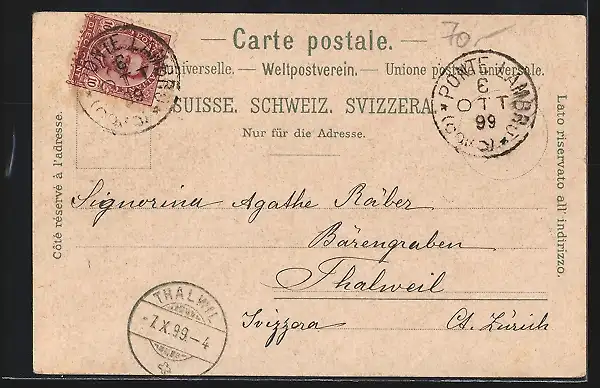 70.-
— Carte postale. —
universelle. — Weltpostverein. — Unione postale universale.
SUISSE. SCHWEIZ. SVIZZERA.
Nur für die Adresse.
PONTE LAMBRO
6
OTT
99
*(COMO)*
PONTE LAMBRO
6
OTT
99
*(COMO)*
10
Côté réservé à l'adresse.
Lato riservato all' indirizzo.
Signorina Agathe Räber
Bärengraben
Thalweil
Svizzera Ct. Zürich
THALWIL
-7.X.99.-4